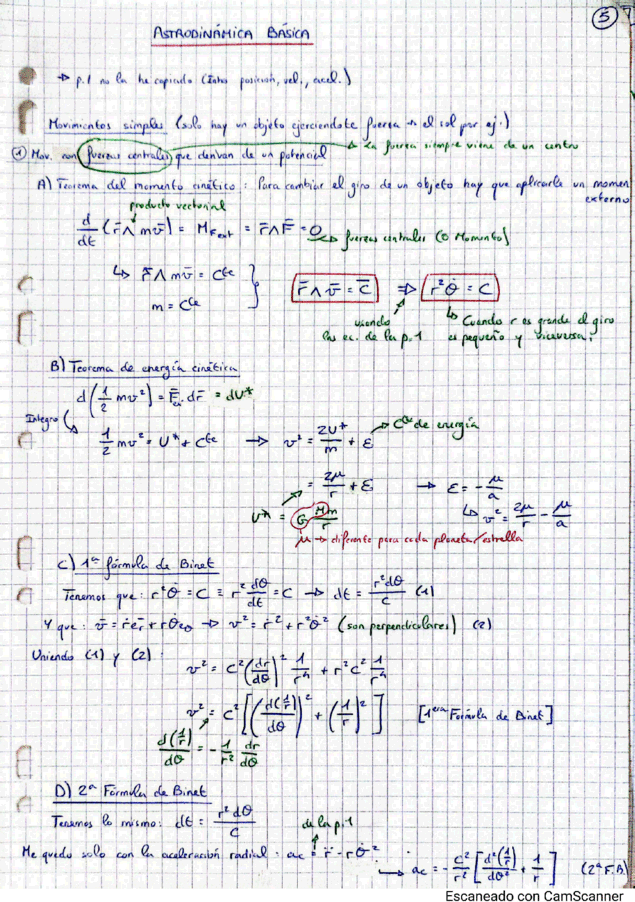 5
ASTRODINÁMICA BÁSICA
→ p.1 no la he copiado (Intro posición, vel., acel.)
Movimientos simples (solo hay un objeto ejerciendote fuerza → el sol por ej.)
① Mov. con fuerzas centrales que derivan de un potencial → La fuerza siempre viene de un centro
A) Teorema del momento cinético: Para cambiar el giro de un objeto hay que aplicarle un momen
externo
producto vectorial
d/dt (r̄ ∧ mv̄) = M_Fext = r̄ ∧ F̄ = 0 → fuerzas centrales (0 Momento)
↳ r̄ ∧ mv̄ = Cte
m = Cte } r̄ ∧ v̄ = C̄ ⇒ r²θ̇ = C
usando las ec. de la p.1
↳ Cuando r es grande el giro es pequeño y viceversa.
B) Teorema de energía cinética
d(1/2 mv²) = F̄ex. dr̄ = dU*
Integro
1/2 mv² = U* + Cte → v² = 2U*/m + ε → Cte de energía
= 2μ/r + ε → ε = -μ/a
U* = G Mm/r ↳ v² = 2μ/r - μ/a
μ → diferente para cada planeta/estrella
C) 1ª fórmula de Binet
Tenemos que: r²θ̇ = C = r² dθ/dt = C → dt = r²dθ/C (1)
Y que: v̄ = ṙēr + rθ̇eθ → v² = ṙ² + r²θ̇² (son perpendiculares) (2)
Uniendo (1) y (2):
v² = C² (dr/dθ)² 1/r⁴ + r²C² 1/r⁴
v² = C² [(d(1/r)/dθ)² + (1/r)²] [1era Fórmula de Binet]
d(1/r)/dθ = -1/r² dr/dθ
D) 2ª Fórmula de Binet
Tenemos lo mismo: dt = r²dθ/C
de la p.1
Me quedo solo con la aceleración radial: ac = r̈ - rθ̇²
→ ac = -C²/r² [d²(1/r)/dθ² + 1/r] (2ª F.B)
Escaneado con CamScanner